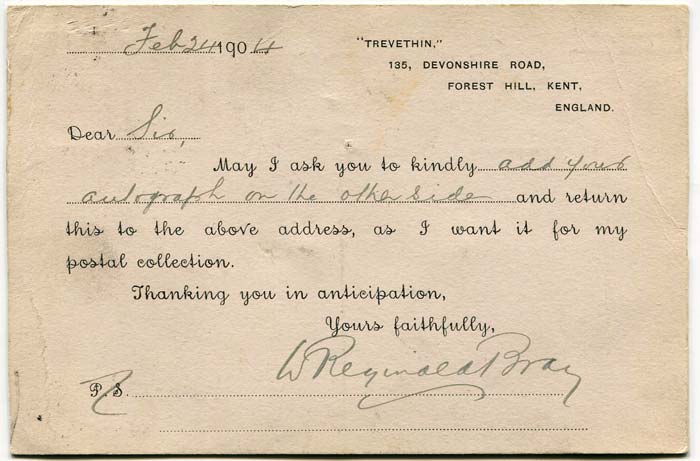 Feb 24 1904
"TREVETHIN,"
135, DEVONSHIRE ROAD,
FOREST HILL, KENT,
ENGLAND.
Dear Sir,
May I ask you to kindly add your
autograph on the other side and return
this to the above address, as I want it for my
postal collection.
Thanking you in anticipation,
Yours faithfully,
W Reginald Bray
P.S.